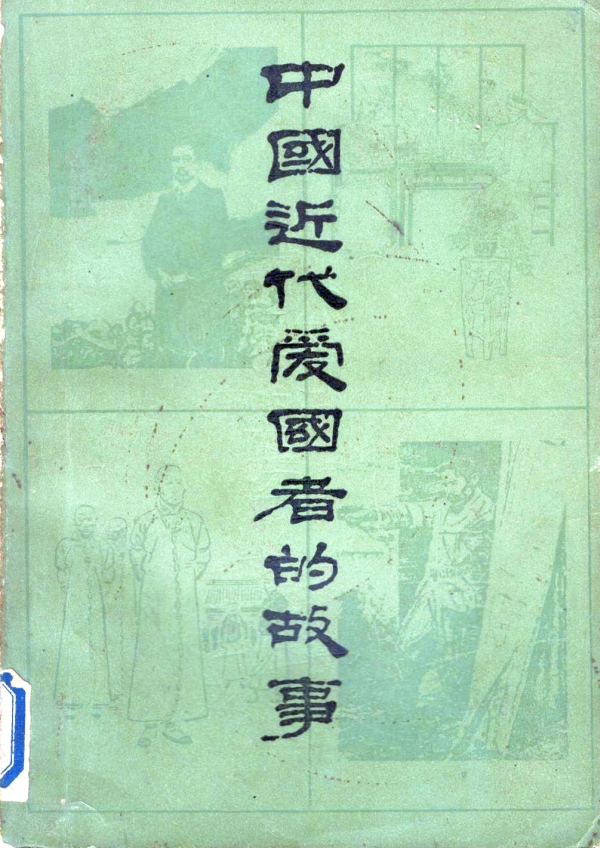 中國近代爱國者的故事